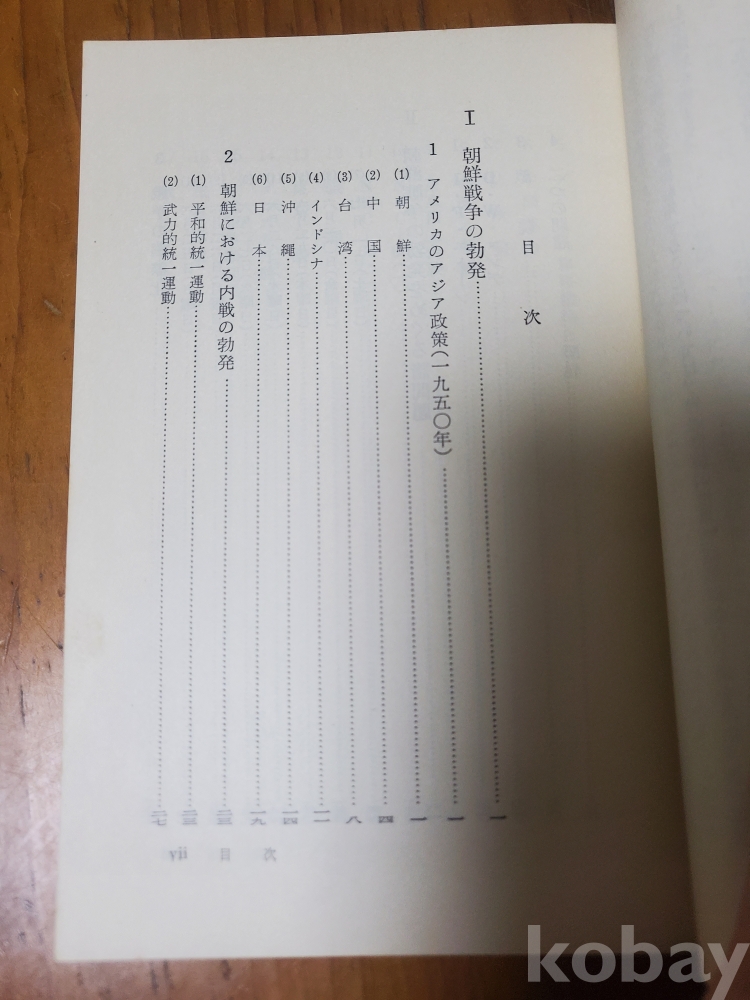 目次
Ⅰ 朝鮮戦争の勃発……一
1 アメリカのアジア政策(一九五〇年)……一
(1) 朝鮮……一
(2) 中国……四
(3) 台湾……八
(4) インドシナ……一一
(5) 沖縄……一四
(6) 日本……一九
2 朝鮮における内戦の勃発……二三
(1) 平和的統一運動……二三
(2) 武力的統一運動……二七
vii 目次
kobay